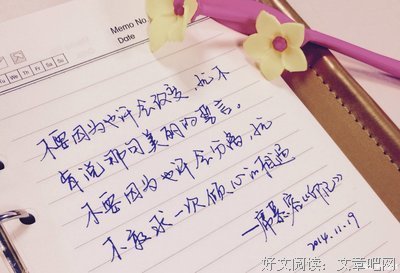 Memo No
Date
Tu We Th Fr Sa Su
不要因为也许会改变，就不
肯说那句美丽的誓言。
不要因为也许会分离，就
不敢求一次倾心的相遇
—席慕容《印记》
2014.11.19
好文阅读：文章吧网